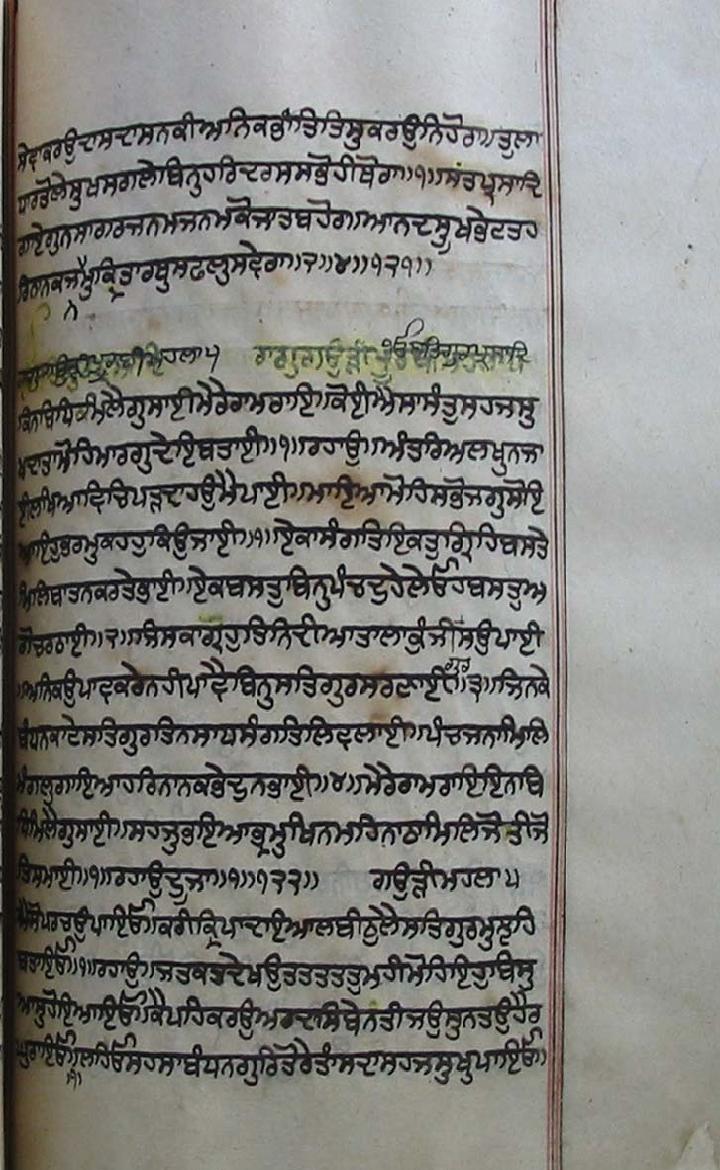 ਸੇਵਾਕਰਉਦਾਸਦਾਸਨਕੀਅਨਿਕਭਾਂਤਿਤਿਸੁਕਰਉਨਿਹੋਰਾ॥ਤੁਲਾ
ਧਾਰਤੋਲੇਸੁਖਸਗਲੇਬਿਨੁਹਰਿਦਰਸਸਭੋਹੀਥੋਰਾ॥੧॥ਸੰਤਪ੍ਰਸਾਦਿ
ਗਾਏਗੁਨਸਾਗਰਜਨਮਜਨਮਕੋਜਾਤਬਹੋਰਾ॥ਆਨਦਸੁਖਭੇਟਤਹ
ਰਿਨਾਨਕਜਨਮੁਕ੍ਰਿਤਾਰਥੁਸਫਲੁਸਵੇਰਾ॥੨॥੪॥੧੨੧॥
ਮਹਲਾ੫ ਰਾਗੁਗਉੜੀ ੴਸਤਿਗੁਰਪ੍ਰਸਾਦਿ
ਕਿਨਬਿਧਿਮਿਲੈਗੁਸਾਈਮੇਰੇਰਾਮਰਾਇ॥ਕੋਈਐਸਾਸੰਤੁਸਹਜਸੁ
ਖਦਾਤਾਮੋਹਿਮਾਰਗੁਦੇਇਬਤਾਈ॥੧॥ਰਹਾਉ॥ਅੰਤਰਿਅਲਖੁਨਜਾ
ਈਲਖਿਆਵਿਚਿਪੜਦਾਹਉਮੈਪਾਈ॥ਮਾਇਆਮੋਹਿਸਭੋਜਗੁਸੋਇ
ਆਇਹੁਭਰਮੁਕਹਹੁਕਿਉਜਾਈ॥੧॥ਏਕਾਸੰਗਤਿਇਕਤੁਗ੍ਰਿਹਿਬਸਤੇ
ਮਿਲਿਬਾਤਨਕਰਤੇਭਾਈ॥ਏਕਬਸਤੁਬਿਨੁਪੰਚਦੁਹੇਲੇਓਹਬਸਤੁਅ
ਗੋਚਰਠਾਈ॥੨॥ਜਿਸਕਾਗ੍ਰਿਹੁਤਿਨਿਦੀਆਤਾਲਾਕੁੰਜੀਸਉਪਾਈ
॥ਅਨਿਕਉਪਾਵਕਰੇਨਹੀਪਾਵੈਬਿਨੁਸਤਿਗੁਰਸਰਣਾਈ॥੩॥ਜਿਨਕੇ
ਬੰਧਨਕਾਟੇਸਤਿਗੁਰਤਿਨਸਾਧਸੰਗਤਿਲਿਵਲਾਈ॥ਪੰਚਜਨਾਮਿਲਿ
ਮੰਗਲੁਗਾਇਆਹਰਿਨਾਨਕਭੇਦੁਨਭਾਈ॥੪॥ਮੇਰੇਰਾਮਰਾਇਇਨਬਿ
ਧਿਮਿਲੈਗੁਸਾਈ॥ਸਹਜੁਭਇਆਭ੍ਰਮੁਖਿਨਮਹਿਨਾਠਾਮਿਲਿਜੋਤੀਜੋ
ਤਿਸਮਾਈ॥੧॥ਰਹਾਉਦੂਜਾ॥੧॥੧੨੨॥ ਗਉੜੀਮਹਲਾ੫
ਐਸੋਪਰਚਉਪਾਇਓ॥ਕਰੀਕ੍ਰਿਪਾਦਇਆਲਬੀਠੁਲੈਸਤਿਗੁਰਮੁਝਹਿ
ਬਤਾਇਓ॥੧॥ਰਹਾਉ॥ਜਤਕਤਦੇਖਉਤਤਤਤਤੁਮਹੀਮੋਹਿਇਹੁਬਿਸੁ
ਆਸੁਹੋਇਆਇਓ॥ਕੈਪਹਿਕਰਉਅਰਦਾਸਿਬੇਨਤੀਜਉਸੁਨਤਉਹੈਰ
ਘੁਰਾਇਓ॥੧॥ਲਹਿਓਸਹਸਾਬੰਧਨਗੁਰਿਤੋਰੇਤਾਂਸਦਾਸਹਜਸੁਖੁਪਾਇਓ॥